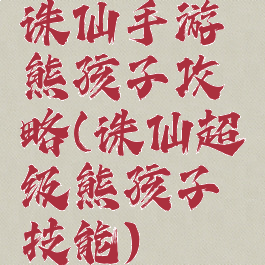 诛仙手游
熊孩子攻
略(诛仙超
级熊孩子
技能)